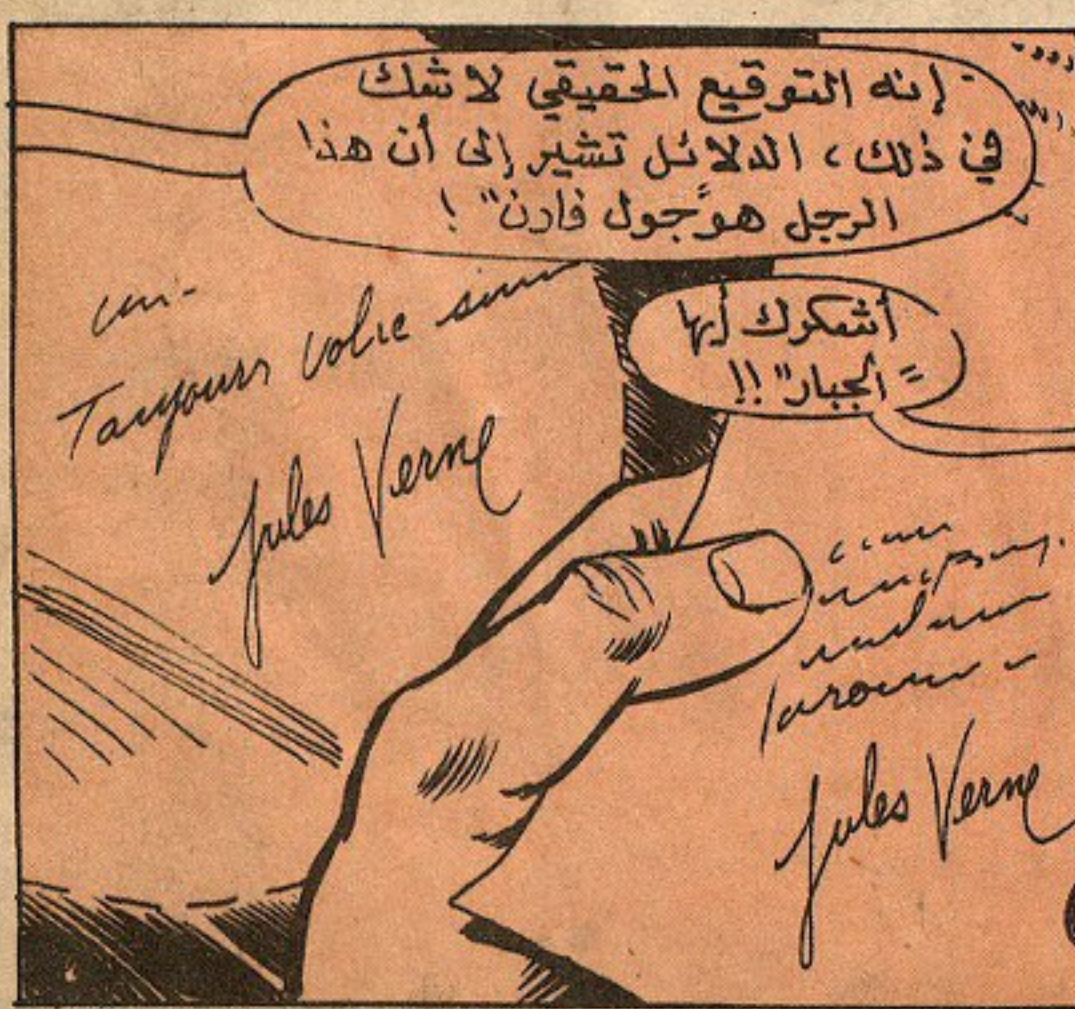 إنه التوقيع الحقيقي لا شك
في ذلك، الدلائل تشير إلى أن هذا
الرجل هو "جول فارن" !
أشكرك أيها
"الجبار" !!
Toujours votre
Jules Verne
Jules Verne